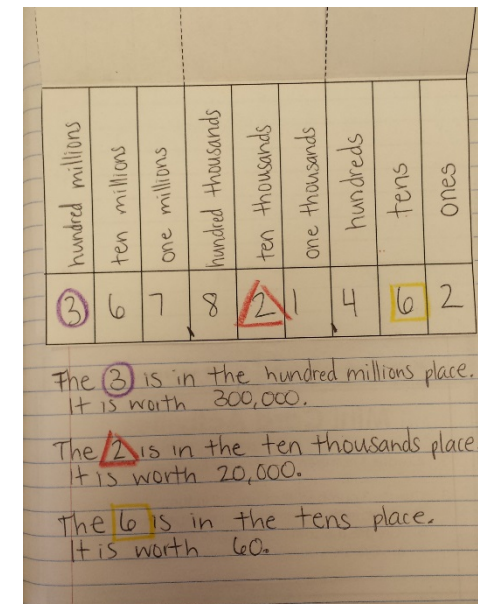 hundred millions
ten millions
one millions
hundred thousands
ten thousands
one thousands
hundreds
tens
ones
3 6 7, 8 2 1, 4 6 2
The 3 is in the hundred millions place.
It is worth 300,000.
The 2 is in the ten thousands place
It is worth 20,000.
The 6 is in the tens place.
It is worth 60.